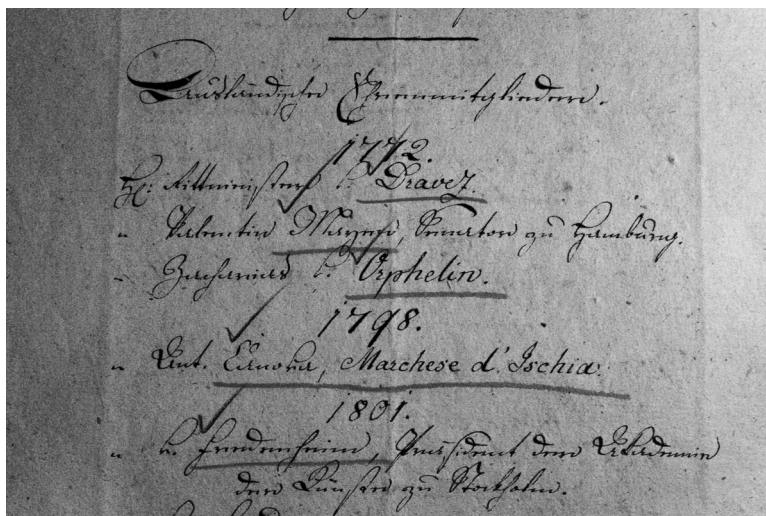 Ausländische Ehrenmitglieder.
1772.
H: Rittmeister v. Dravez.
" Valentin Mayer, Senator zu Hamburg.
" Zacharias v. Orphelin.
1798.
" Ant. Canova, Marchese d'Ischia.
1801.
" v. Fredenheim, Präsident der Akademie
der Künste zu Stockholm.